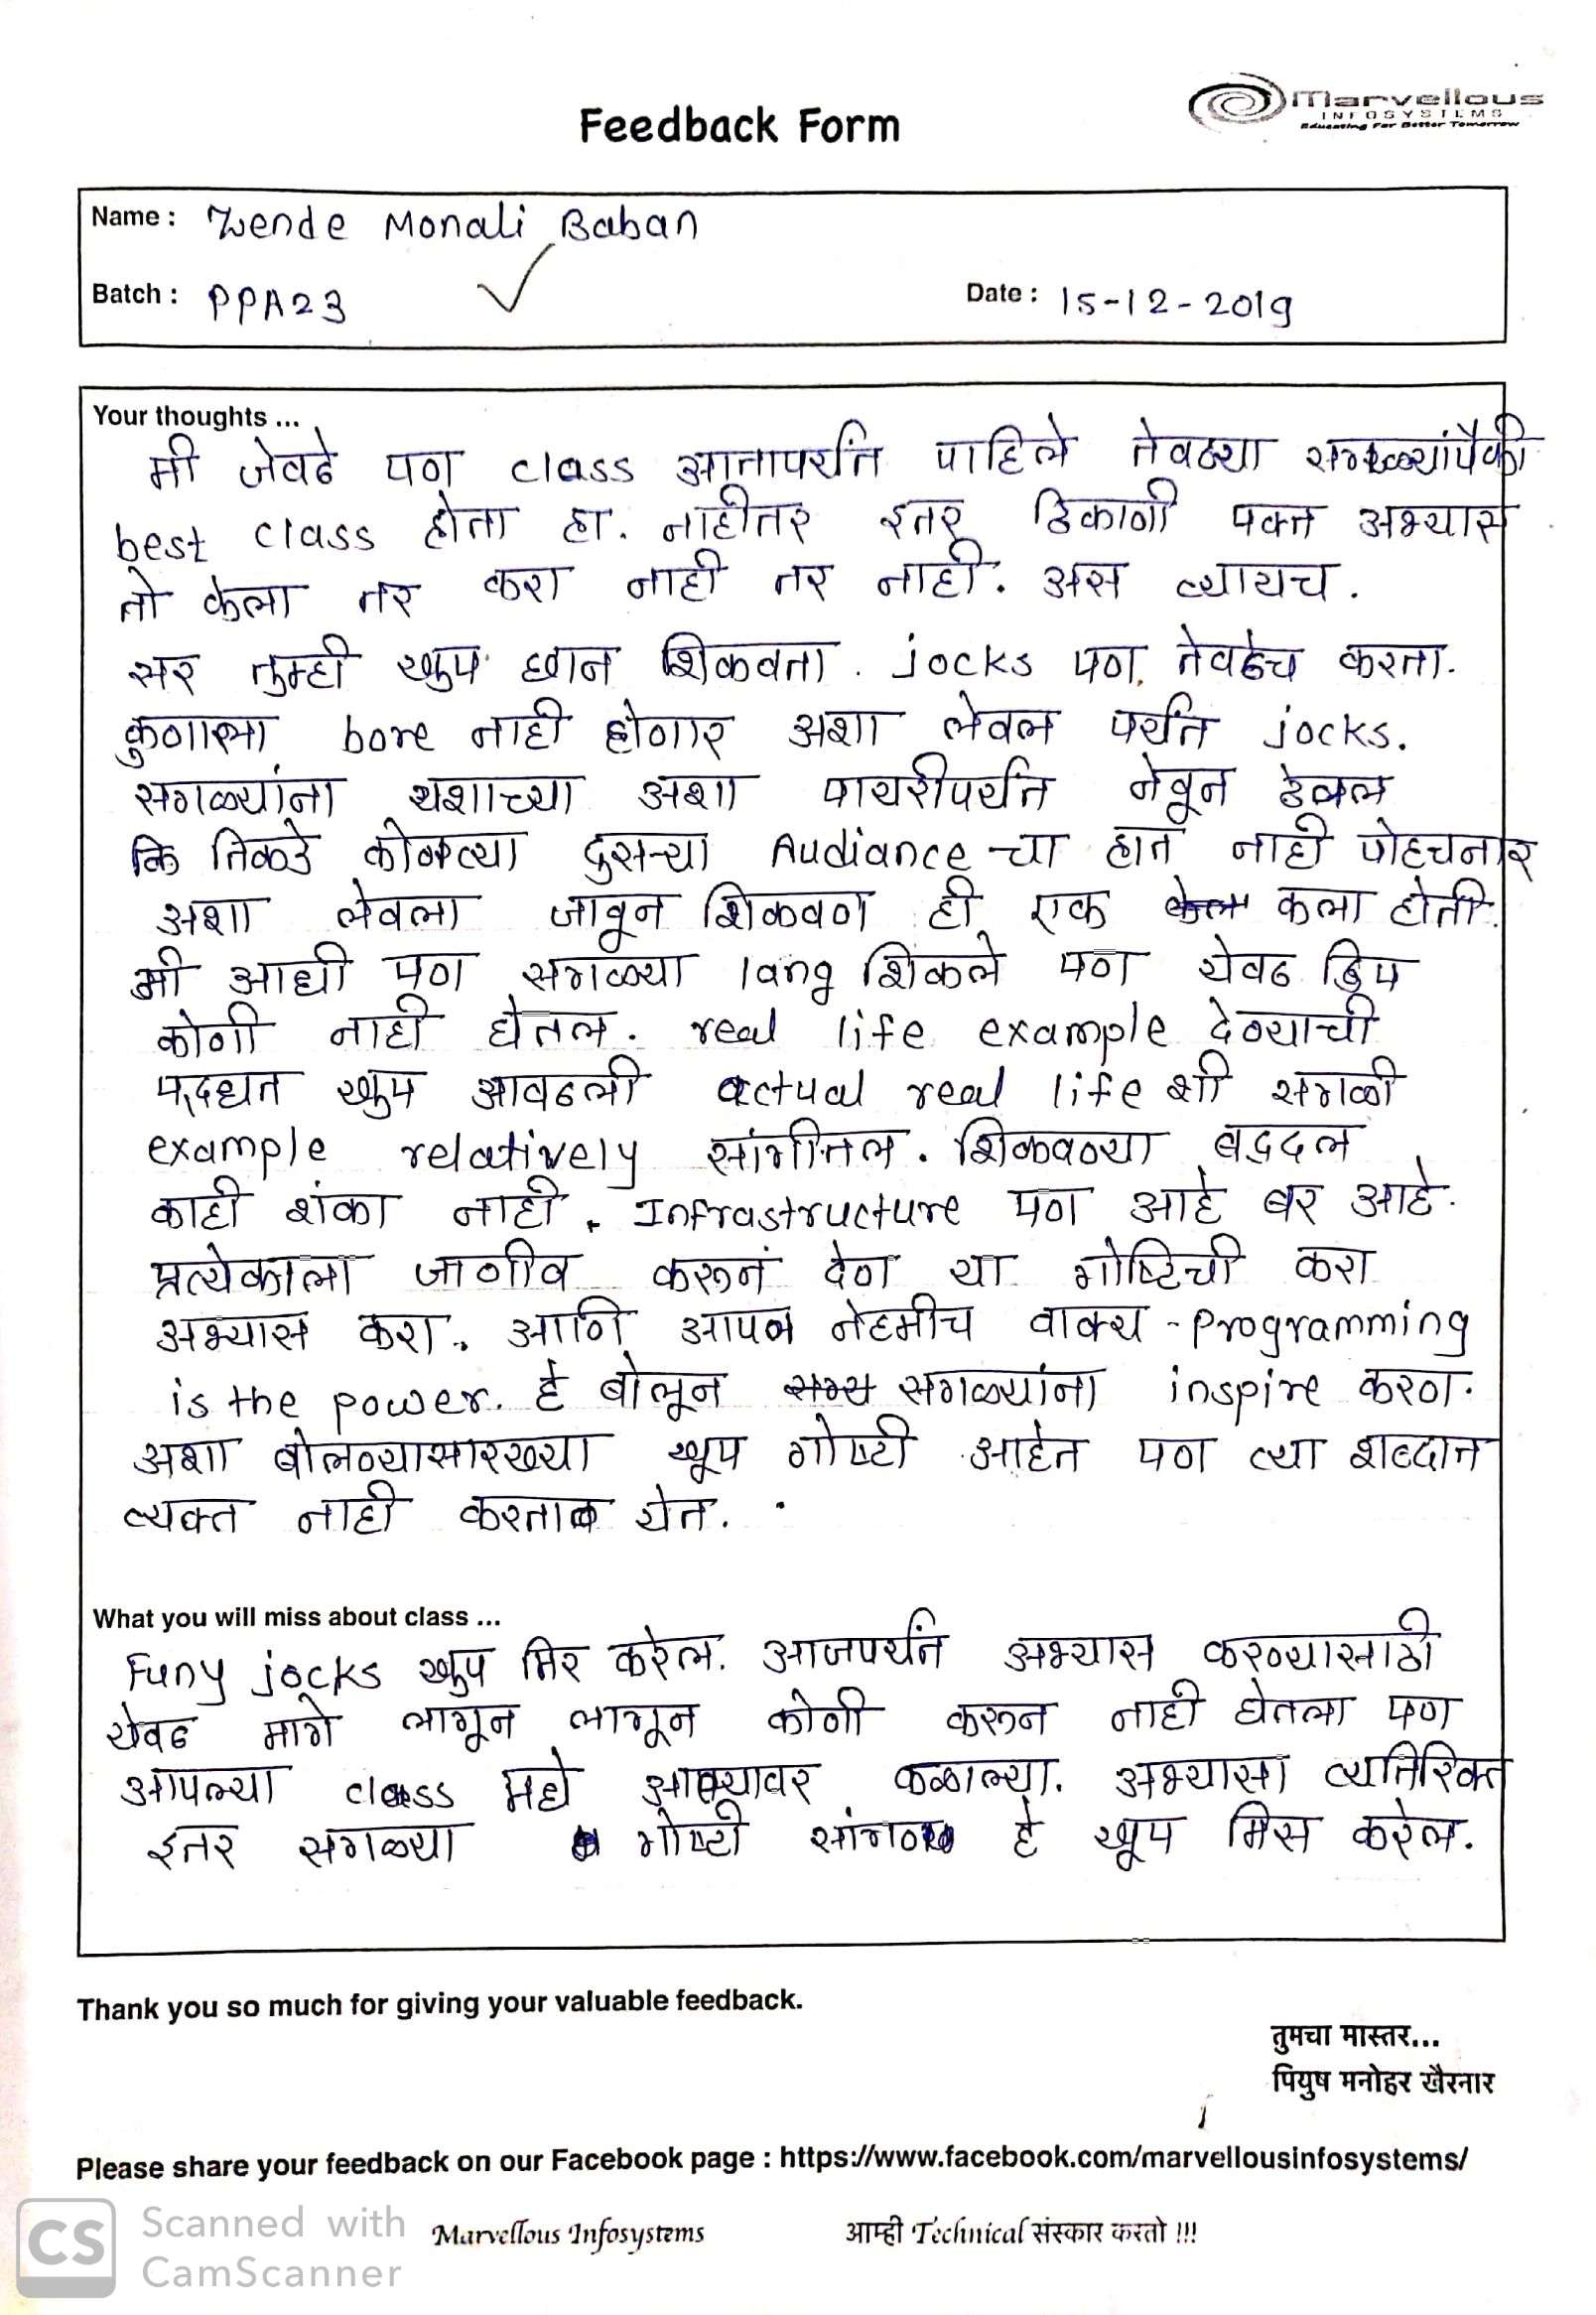 Marvellous
INFOSYSTEMS
Educating For Better Tomorrow
Feedback Form
Name : Zende Monali Baban
Batch : PPA23 Date : 15-12-2019
Your thoughts ...
मी जेवढे पण class आतापर्यंत पाहिले तेवढ्या सगळ्यांपैकी
best class होता हा. नाहीतर इतर ठिकाणी पक्त अभ्यास
तो केला तर करा नाही तर नाही. अस व्यायच.
सर तुम्ही खुप छान शिकवता. jocks पण तेवढेच करता.
कुणाला bore नाही होणार अशा लेवल पर्यंत jocks.
सगळ्यांना यशाच्या अशा पायरीपर्यंत नेवून ठेवल
कि तिकडे कोणत्या दुसऱ्या Audiance चा हात नाही पोहचनार
अशा लेवला जावून शिकवण ही एक कला होती.
मी आधी पण सगळ्या lang शिकले पण येवढ डिप
कोणी नाही घेतल. real life example देण्याची
पद्धत खुप आवढली actual real life शी सगळी
example relatively सांगीतल. शिकवण्या बद्दल
काही शंका नाही. Infrastructure पण आहे बर आहे.
प्रत्येकाला जाणीव करून देण या गोष्टिची करा
अभ्यास करा. आणि आपल नेहमीच वाक्य - Programming
is the power. हे बोलून सगळ्यांना inspire करण.
अशा बोलण्यासारख्या खूप गोष्टी आहेत पण त्या शब्दात
व्यक्त नाही करता येत.
What you will miss about class ...
Funy jocks खुप मिस करेल. आजपर्यंत अभ्यास करण्यासाठी
येवढ मागे लागून लागून कोणी करून नाही घेतला पण
आपल्या class मधे आल्यावर कळाल्या. अभ्यासा व्यतिरिक्त
इतर सगळ्या गोष्टी सांगण हे खूप मिस करेल.
Thank you so much for giving your valuable feedback.
तुमचा मास्तर...
पियुष मनोहर खैरनार
Please share your feedback on our Facebook page : https://www.facebook.com/marvellousinfosystems/
CS Scanned with CamScanner
Marvellous Infosystems आम्ही Technical संस्कार करतो !!!